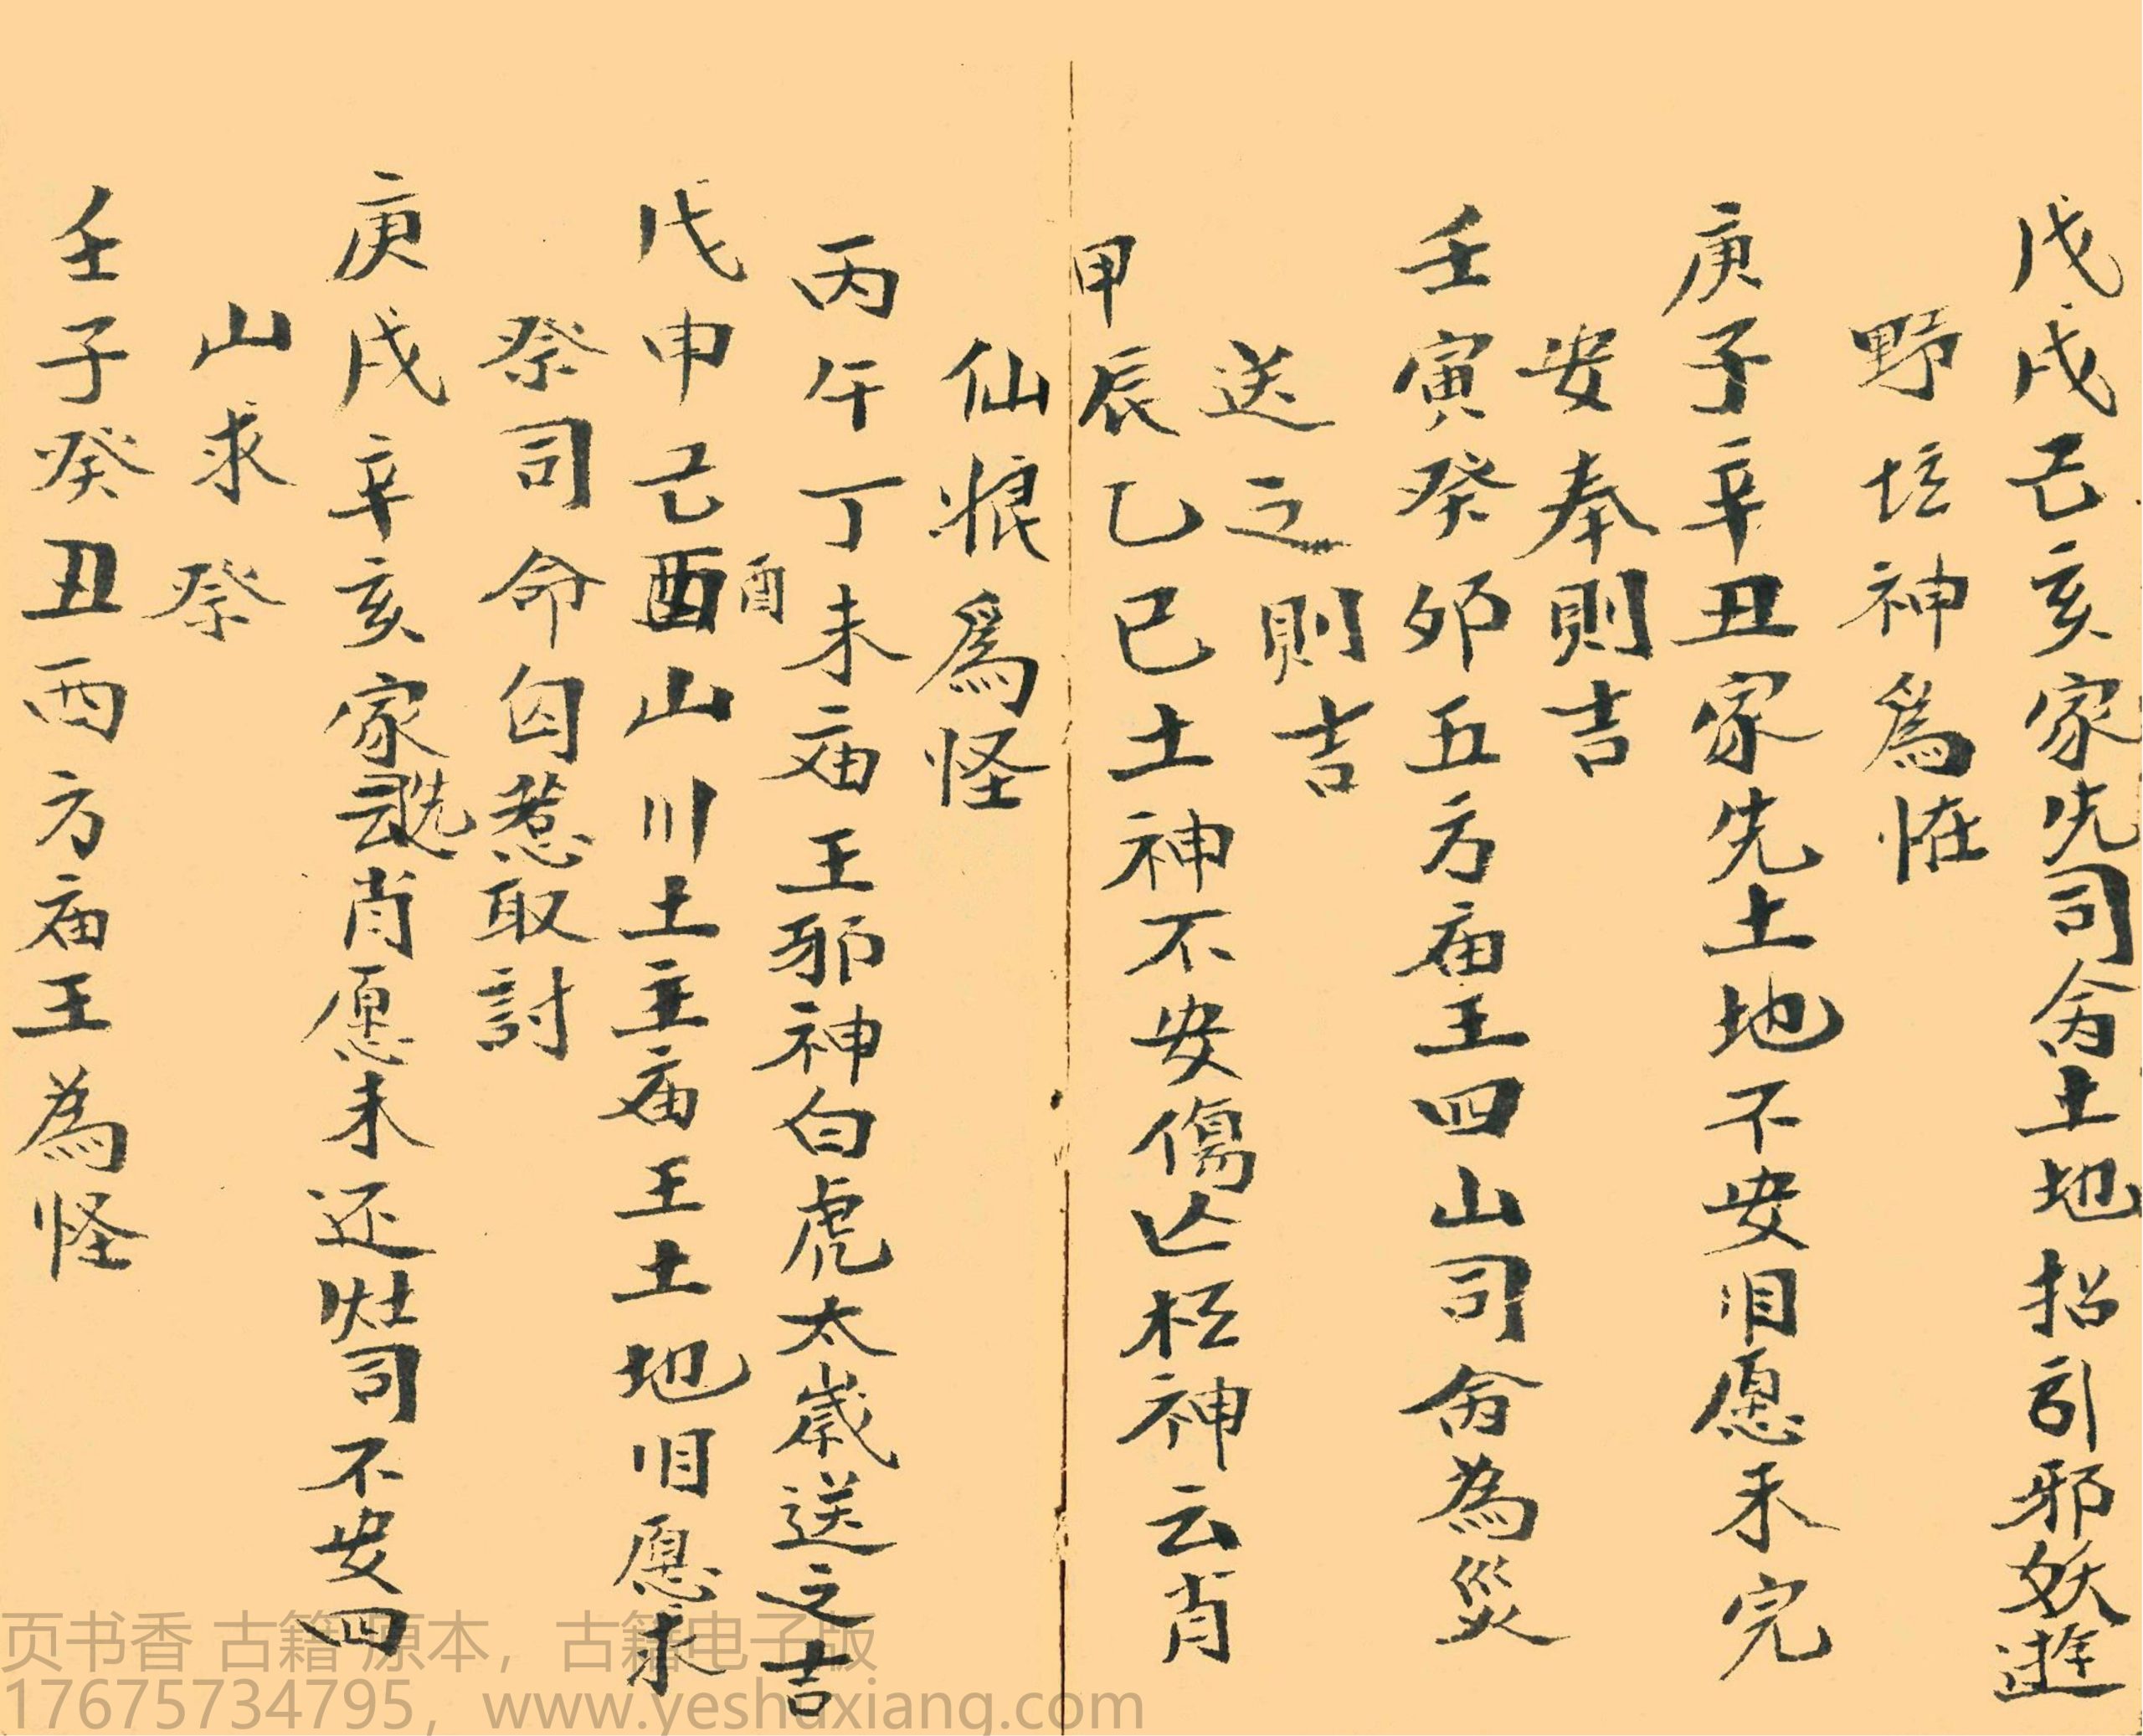 戊戌己亥家先司命土地招引邪妖遊
野坛神爲怪
庚子辛丑家先土地不安旧愿未完
安奉則吉
壬寅癸卯五方庙王四山司命為災
送之則吉
甲辰乙巳土神不安傷亡松神云肖
仙娘爲怪
丙午丁未庙王邪神白虎太歲送之吉
戊申己酉酉山川土主庙王土地旧愿求
祭司命勾惹取討
庚戌辛亥家先云肖愿未还灶司不安四
山求祭
壬子癸丑西方庙王為怪
页书香 古籍 原本，古籍电子版
17675734795，www.yeshuxiang.com